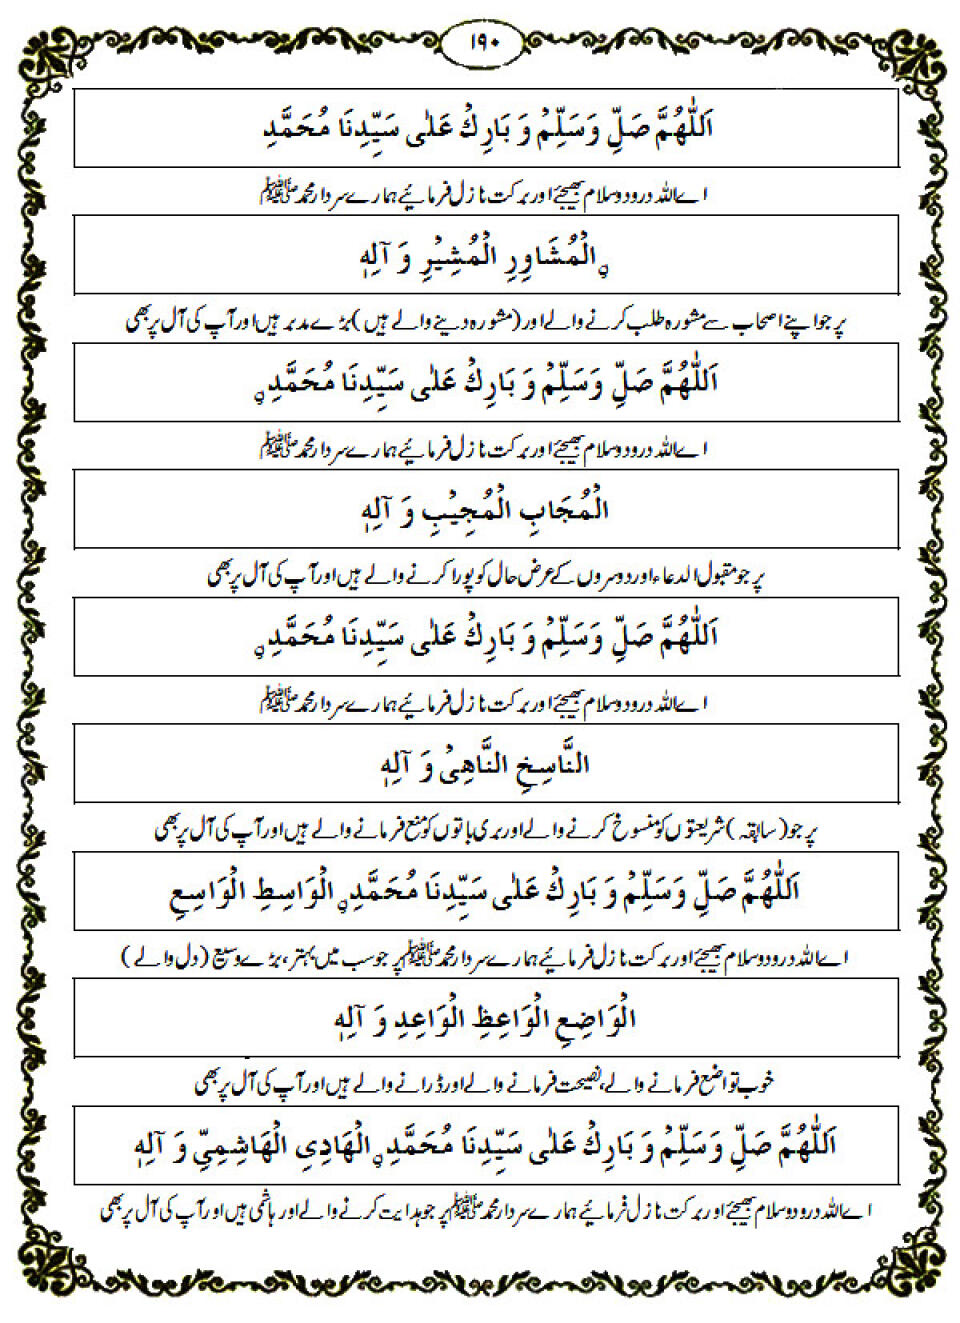 ۱۹۰
اَللّٰهُمَّ صَلِّ وَسَلِّمْ وَ بَارِكْ عَلٰى سَيِّدِنَا مُحَمَّدِ
اے اللہ درود و سلام بھیجئے اور برکت نازل فرمائیے ہمارے سردار محمد ﷺ
نِ الْمُشَاوِرِ الْمُشِيْرِ وَ آلِهٖ
پر جو اپنے اصحاب سے مشورہ طلب کرنے والے اور (مشورہ دینے والے ہیں) بڑے مدبر ہیں اور آپ کی آل پر بھی
اَللّٰهُمَّ صَلِّ وَسَلِّمْ وَ بَارِكْ عَلٰى سَيِّدِنَا مُحَمَّدِ نِ
اے اللہ درود و سلام بھیجئے اور برکت نازل فرمائیے ہمارے سردار محمد ﷺ
الْمُجَابِ الْمُجِيْبِ وَ آلِهٖ
پر جو مقبول الدعاء اور دوسروں کے عرض حال کو پورا کرنے والے ہیں اور آپ کی آل پر بھی
اَللّٰهُمَّ صَلِّ وَسَلِّمْ وَ بَارِكْ عَلٰى سَيِّدِنَا مُحَمَّدِ نِ
اے اللہ درود و سلام بھیجئے اور برکت نازل فرمائیے ہمارے سردار محمد ﷺ
النَّاسِخِ النَّاهِىْ وَ آلِهٖ
پر جو (سابقہ) شریعتوں کو منسوخ کرنے والے اور بری باتوں کو منع فرمانے والے ہیں اور آپ کی آل پر بھی
اَللّٰهُمَّ صَلِّ وَسَلِّمْ وَ بَارِكْ عَلٰى سَيِّدِنَا مُحَمَّدِ نِ الْوَاسِطِ الْوَاسِعِ
اے اللہ درود و سلام بھیجئے اور برکت نازل فرمائیے ہمارے سردار محمد ﷺ پر جو سب میں بہتر، بڑے وسیع (دل والے)
الْوَاضِعِ الْوَاعِظِ الْوَاعِدِ وَ آلِهٖ
خوب تواضع فرمانے والے، نصیحت فرمانے والے اور ڈرانے والے ہیں اور آپ کی آل پر بھی
اَللّٰهُمَّ صَلِّ وَسَلِّمْ وَ بَارِكْ عَلٰى سَيِّدِنَا مُحَمَّدِ نِ الْهَادِى الْهَاشِمِىِّ وَ آلِهٖ
اے اللہ درود و سلام بھیجئے اور برکت نازل فرمائیے ہمارے سردار محمد ﷺ پر جو ہدایت کرنے والے اور ہاشمی ہیں اور آپ کی آل پر بھی